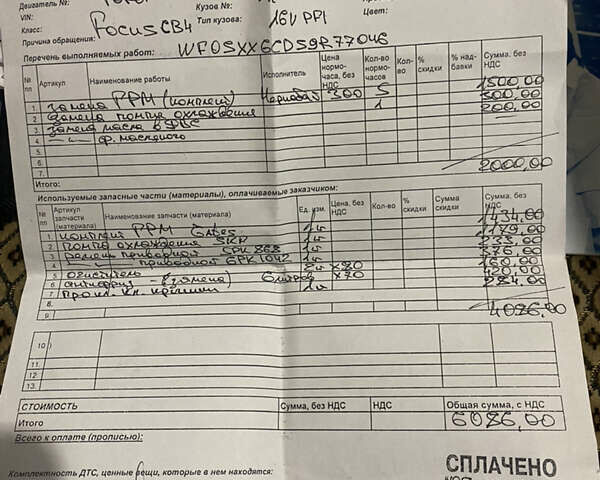 Двигатель №
Кузов №:
VIN:
Тип кузова: 16V PPI
Цвет:
Класс: Focus CB4
Причина обращения:
Перечень выполняемых работ: WF05XXGCD59R77046
№ пп Артикул Наименование работы Исполнитель Цена нормо-часа, без НДС Кол-во нормо-часов Кол-во % скидки % над-бавки Сумма, без НДС
1 Замена РРМ (комплект) 300 5 1500,00
2 Замена помпы охлаждения 1 300,00
3 Замена масла в ДВС 200,00
4 —"— ф. масляного —
5.
6.
7.
2000,00
Итого:
Используемые запасные части (материалы), оплачиваемые заказчиком:
№ пп Артикул запчасти (материала) Наименование запчасти (материала) Ед. изм. Цена, без НДС Кол-во % скидки Сумма скидки Сумма, без НДС
1 комплект РРМ Gates 1к 1434,00
2 Помпа охлаждения SKF 1ш 1179,00
3 ремень приводной 1ш 233,00
4 —"— приводной 6PK1042 1ш 376,00
5 очиститель 2ш х80 160,00
6 антифриз - (замена) 6 литров х70 420,00
7 1ш 284,00
8.
9.
4086,00
10
11.
12.
13.
СТОИМОСТЬ Сумма, без НДС НДС Общая сумма, с НДС
Итого 6086,00
Всего к оплате (прописью):
Комплектность ДТС, ценные вещи, которые в нем находятся:
СПЛАЧЕНО